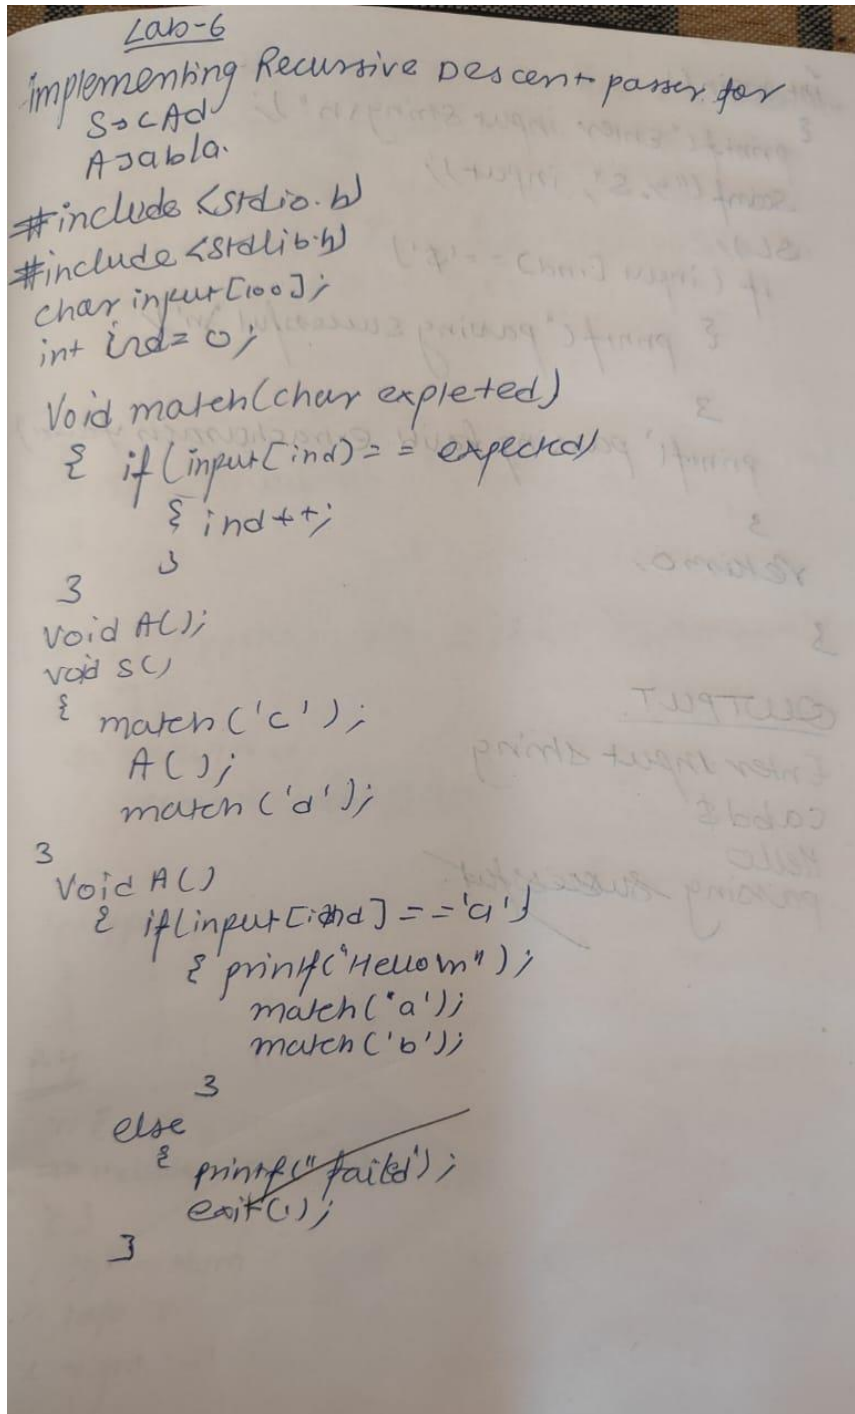 Lab-6
Implementing Recursive Descent passer for
S→cAd
A→ab|a.
#include <stdio.h>
#include <stdlib.h>
char input[100];
int ind=0;
Void match(char expleted)
{ if(input[ind)== expected)
{ ind++;
}
}
void A();
void S()
{ match('c');
A();
match('d');
}
Void A()
{ if(input[ind]=='a')
{ printf("Hello\n");
match("a');
match('b');
}
else
{ printf("failed');
exit(1);
}